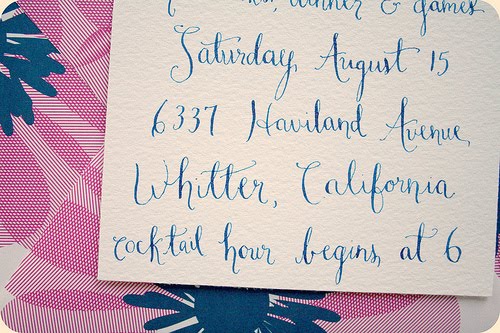 dinner & games
Saturday, August 15
6337 Haviland Avenue
Whitter, California
cocktail hour begins at 6